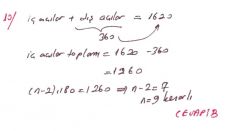 10/ iç açılar + dış açılar = 1620
360
iç açılar toplamı = 1620 - 360
= 1260
(n-2).180 = 1260 ⇒ n-2 = 7
n = 9 kenarlı
CEVAP: B